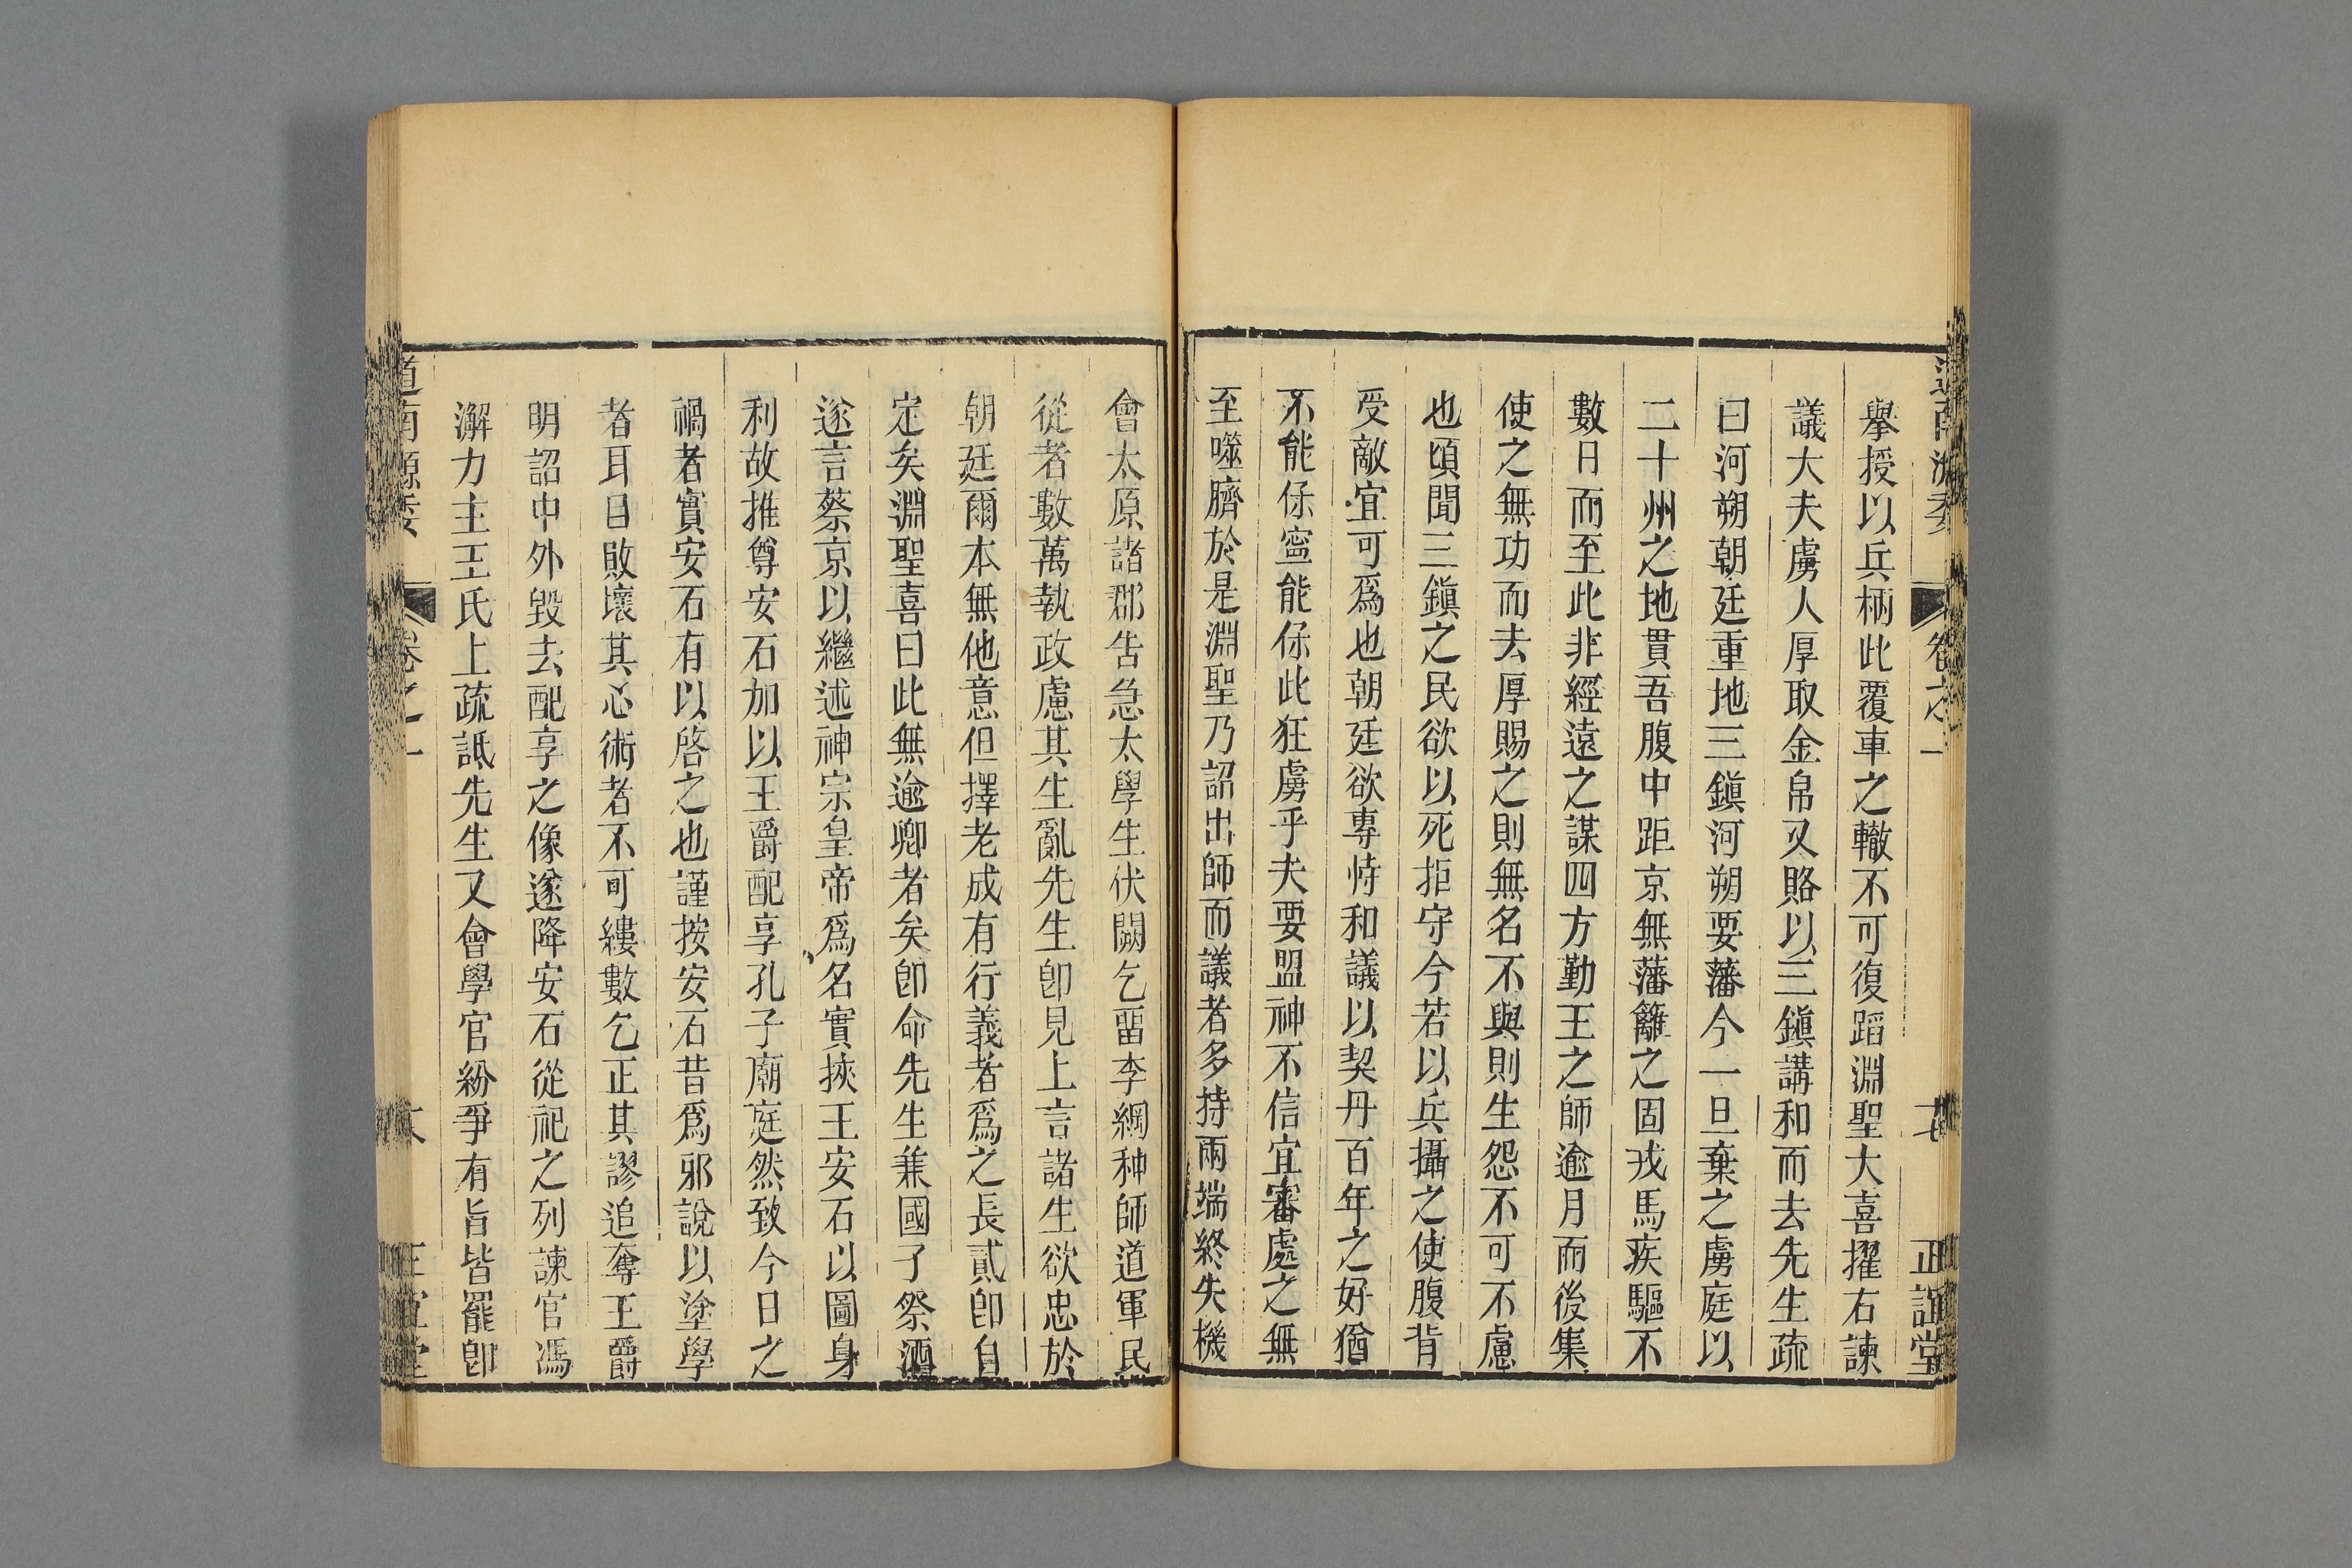 道南源委 卷之一 十七 正誼堂
擧授以兵柄此覆車之轍不可復蹈淵聖大喜擢右諫
議大夫虜人厚取金帛又賂以三鎭講和而去先生疏
曰河朔朝廷重地三鎭河朔要藩今一旦棄之虜庭以
二十州之地貫吾腹中距京無藩籬之固戎馬疾驅不
數日而至此非經遠之謀四方勤王之師逾月而後集
使之無功而去厚賜之則無名不與則生怨不可不慮
也頃聞三鎭之民欲以死拒守今若以兵攝之使腹背
受敵宜可爲也朝廷欲專恃和議以契丹百年之好猶
不能保寍能保此狂虜乎夫要盟神不信宜審處之無
至噬臍於是淵聖乃詔出師而議者多持兩端終失機
會太原諸郡告急太學生伏闕乞畱李綱种師道軍民
從者數萬執政慮其生亂先生卽見上言諸生欲忠於
朝廷爾本無他意但擇老成有行義者爲之長貳卽自
定矣淵聖喜曰此無逾卿者矣卽命先生兼國子祭酒
遂言蔡京以繼述神宗皇帝爲名實挾王安石以圖身
利故推尊安石加以王爵配享孔子廟庭然致今日之
禍者實安石有以啓之也謹按安石昔爲邪說以塗學
者耳目敗壞其心術者不可縷數乞正其謬追奪王爵
明詔中外毀去配享之像遂降安石從祀之列諫官馮
澥力主王氏上疏詆先生又會學官紛爭有旨皆罷卽
道南源委 卷之一